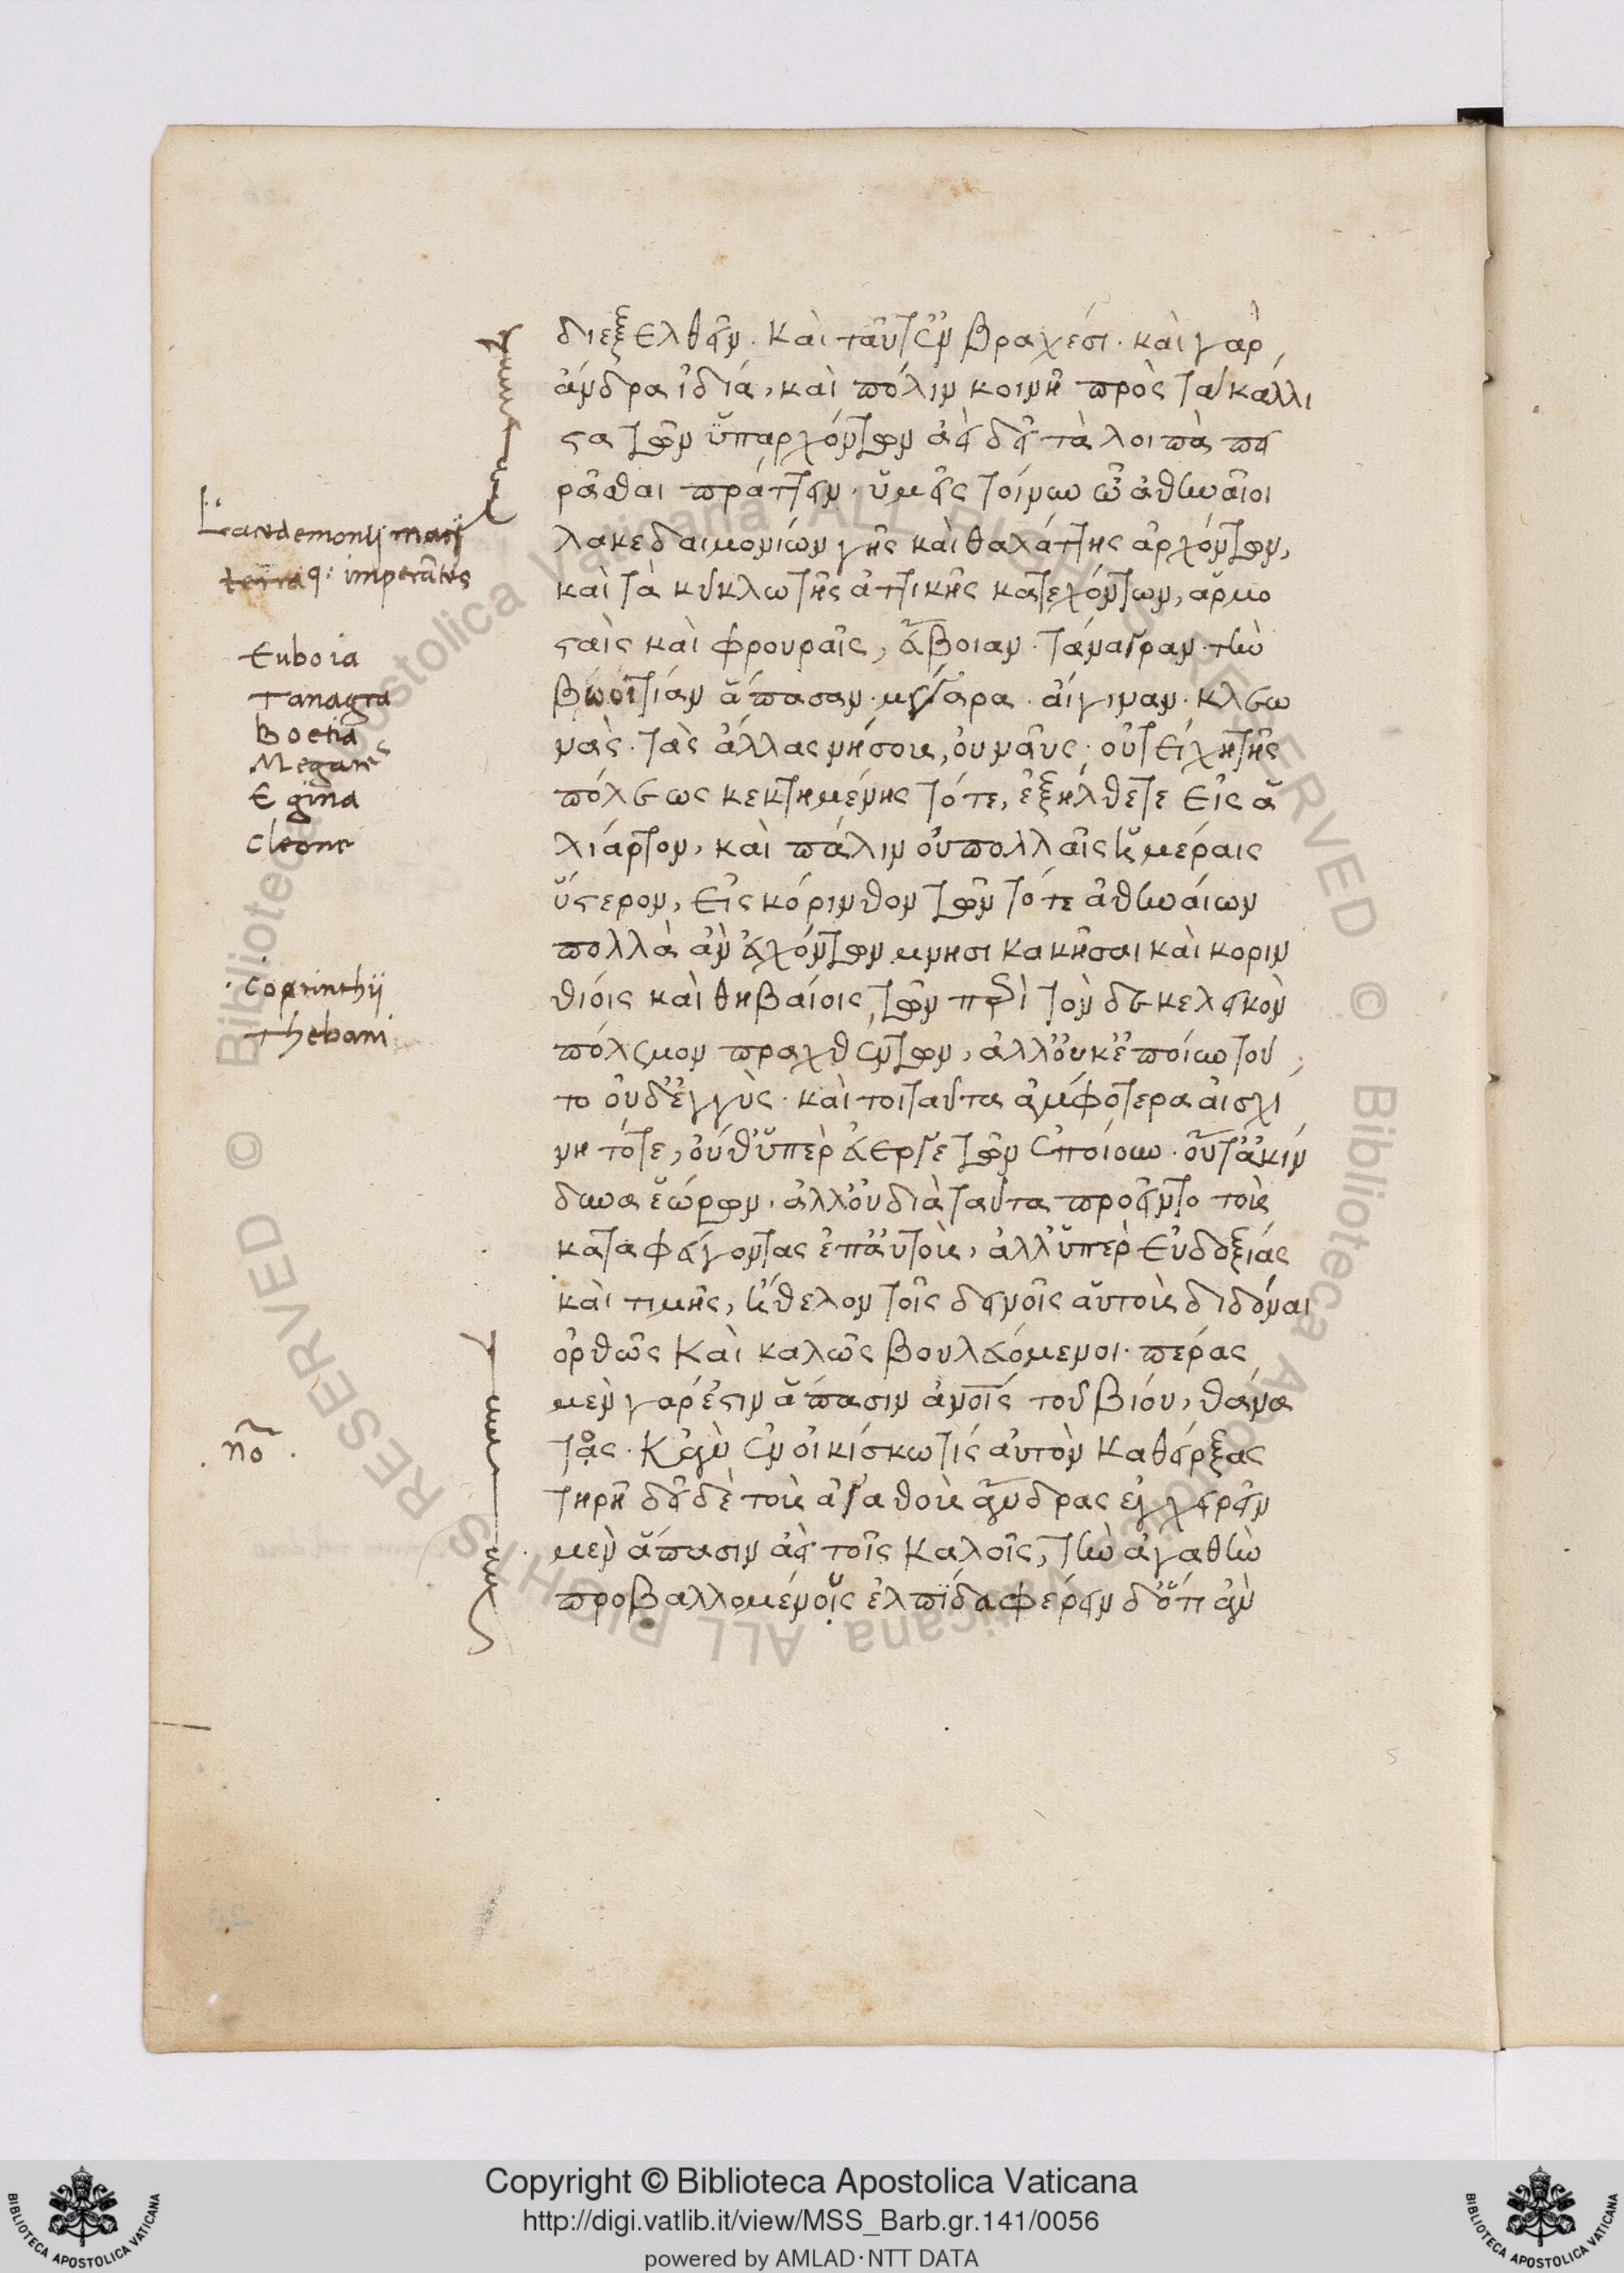 διεξελθεῖν. καὶ ταῦτ' ἐν βραχέσι. καὶ γὰρ
ἄνδρα ἰδία, καὶ πόλιν κοινῆ πρὸς τὰ κάλλι
στα τῶν ὑπαρχόντων ἀεὶ δεῖ τὰ λοιπὰ πει
ρᾶσθαι πράττειν. ὑμεῖς τοίνυν ὦ ἀθηναῖοι
λακεδαιμονίων γῆς καὶ θαλάττης ἀρχόντων,
καὶ τὰ κύκλω τῆς ἀττικῆς κατεχόντων, ἁρμο
σταῖς καὶ φρουραῖς, εὔβοιαν. τάναγραν. τὴν
βοιωτίαν ἅπασαν. μέγαρα. αἴγιναν. κλεω
νὰς. τὰς ἄλλας νήσους, οὐ ναῦς. οὐ τείχη τῆς
πόλεως κεκτημένης τότε, ἐξήλθετε εἰς ἁ
λίαρτον, καὶ πάλιν οὐ πολλαῖς ἡμέραις
ὕστερον, εἰς κόρινθον τῶν τότε ἀθηναίων
πολλὰ ἂν ἐχόντων μνησικακῆσαι καὶ κοριν
θίοις καὶ θηβαίοις, τῶν περὶ τὸν δεκελεικὸν
πόλεμον πραχθέντων, ἀλλ' οὐκ ἐποίουν τοῦ
το οὐδ' ἐγγὺς. καίτοι ταῦτα ἀμφότερα αἰσχί
νη τότε, οὔθ' ὑπὲρ εὐεργετῶν ἐποίουν. οὔτ' ἀκίν
δυνα ἑώρων. ἀλλ' οὐ διὰ ταῦτα προεῖντο τοὺς
καταφεύγοντας ἐπ' αὐτοὺς, ἀλλ' ὑπὲρ εὐδοξίας
καὶ τιμῆς, ἤθελον τοῖς δεινοῖς αὑτοὺς διδόναι
ὀρθῶς καὶ καλῶς βουλευόμενοι. πέρας
μὲν γάρ ἐστιν ἅπασιν ἀνοῖς τοῦ βίου, θάνα
τος. κἂν ἐν οἰκίσκω τίς αὑτὸν καθείρξας
τηρῆ δεῖ δὲ τοὺς ἀγαθοὺς ἄνδρας ἐγχειρεῖν
μὲν ἅπασιν ἀεὶ τοῖς καλοῖς, τὴν ἀγαθὴν
προβαλλομένοις ἐλπίδα φέρειν δ' ὅτι ἂν
Lacedemonij marj
terraq: imperātes
Euboia
Tanagra
Boetia
Megare
Egina
Cleone
Corinthij
Thebani
nō
Copyright © Biblioteca Apostolica Vaticana
http://digi.vatlib.it/view/MSS_Barb.gr.141/0056
powered by AMLAD·NTT DATA
BIBLIOTECA APOSTOLICA VATICANA
BIBLIOTECA APOSTOLICA VATICANA
© Biblioteca Apostolica Vaticana ALL RIGHTS RESERVED © Biblioteca Apostolica Vaticana ALL RIGHTS RESERVED